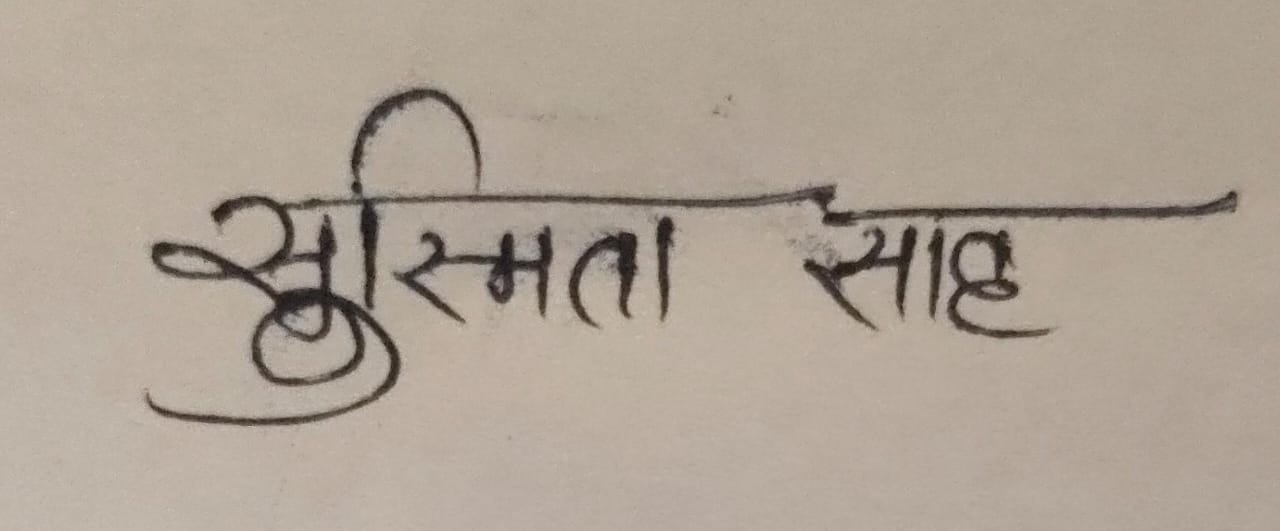 सुस्मिता साह